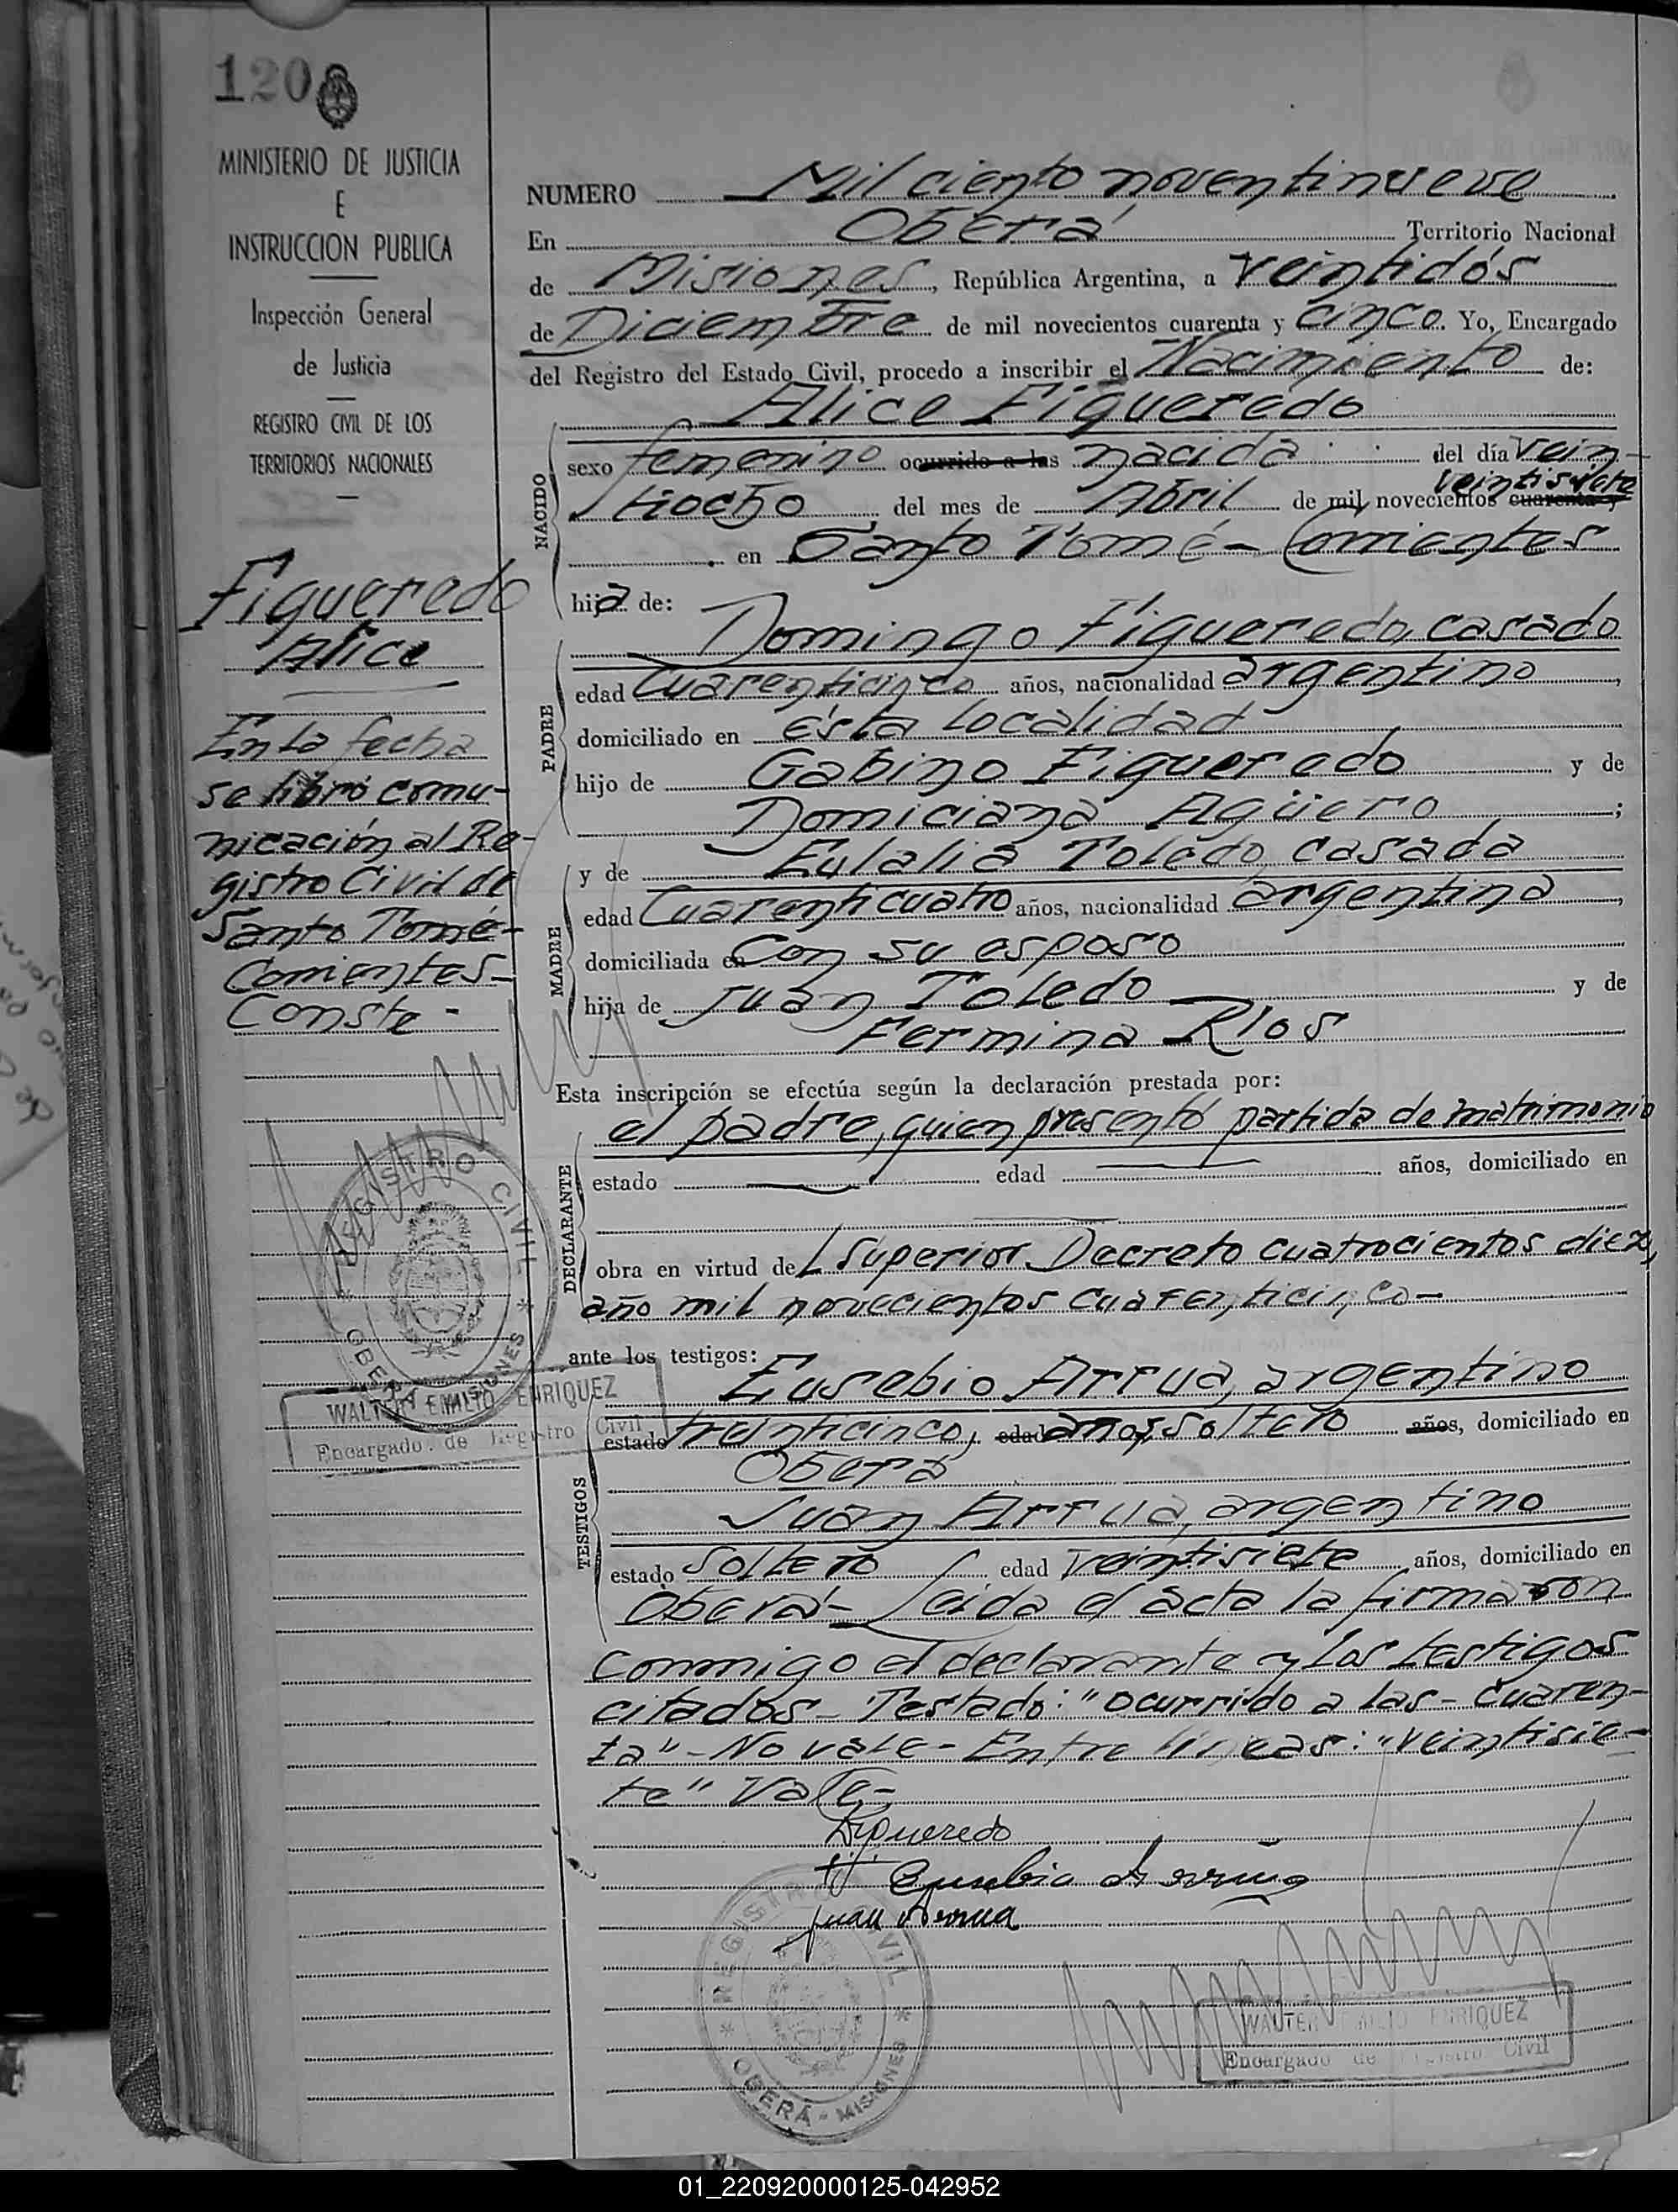 120
MINISTERIO DE JUSTICIA
E
INSTRUCCION PUBLICA
Inspección General
de Justicia
REGISTRO CIVIL DE LOS
TERRITORIOS NACIONALES
Figueredo
Alice
En la fecha
se libró comu-
nicación al Re-
gistro Civil de
Santo Tomé-
Corrientes-
Conste-
REGISTRO CIVIL
OBERÁ - MISIONES
WALTER EMILIO ENRIQUEZ
Encargado de Registro Civil
NUMERO Mil ciento noventinueve
En Oberá Territorio Nacional
de Misiones, República Argentina, a veintidós
de Diciembre de mil novecientos cuarenta y cinco. Yo, Encargado
del Registro del Estado Civil, procedo a inscribir el Nacimiento de:
Alice Figueredo
NACIDO
sexo femenino ocurrido a las nacida del día vein-
veintisiete
tiocho del mes de Abril de mil novecientos cuarenta y
en Santo Tomé - Corrientes
hija de:
PADRE
Domingo Figueredo, casado
edad Cuarenticinco años, nacionalidad argentino,
domiciliado en ésta localidad
hijo de Gabino Figueredo y de
Domiciana Agüero;
MADRE
y de Eulalia Toledo, casada
edad Cuarenticuatro años, nacionalidad argentina,
domiciliada en Con su esposo
hija de Juan Toledo y de
Fermina Rios
Esta inscripción se efectúa según la declaración prestada por:
DECLARANTE
el padre, quien presentó partida de matrimonio
estado edad años, domiciliado en
obra en virtud del Superior Decreto cuatrocientos diez,
año mil novecientos cuarenticinco-
ante los testigos:
TESTIGOS
Eusebio Arrua, argentino
estado treinticinco, edad años, soltero años, domiciliado en
Oberá
Juan Arrua, argentino
estado soltero edad veintisiete años, domiciliado en
Oberá- Leida el acta la firmaron
conmigo el declarante y los testigos
citados- Testado: "ocurrido a las- cuaren-
ta"- No vale- Entre lineas: "veintisie-
te" Vale-
Figueredo
Eusebio Arrua
Juan Arrua
REGISTRO CIVIL
OBERÁ - MISIONES
WALTER EMILIO ENRIQUEZ
Encargado de Registro Civil
01_220920000125-042952